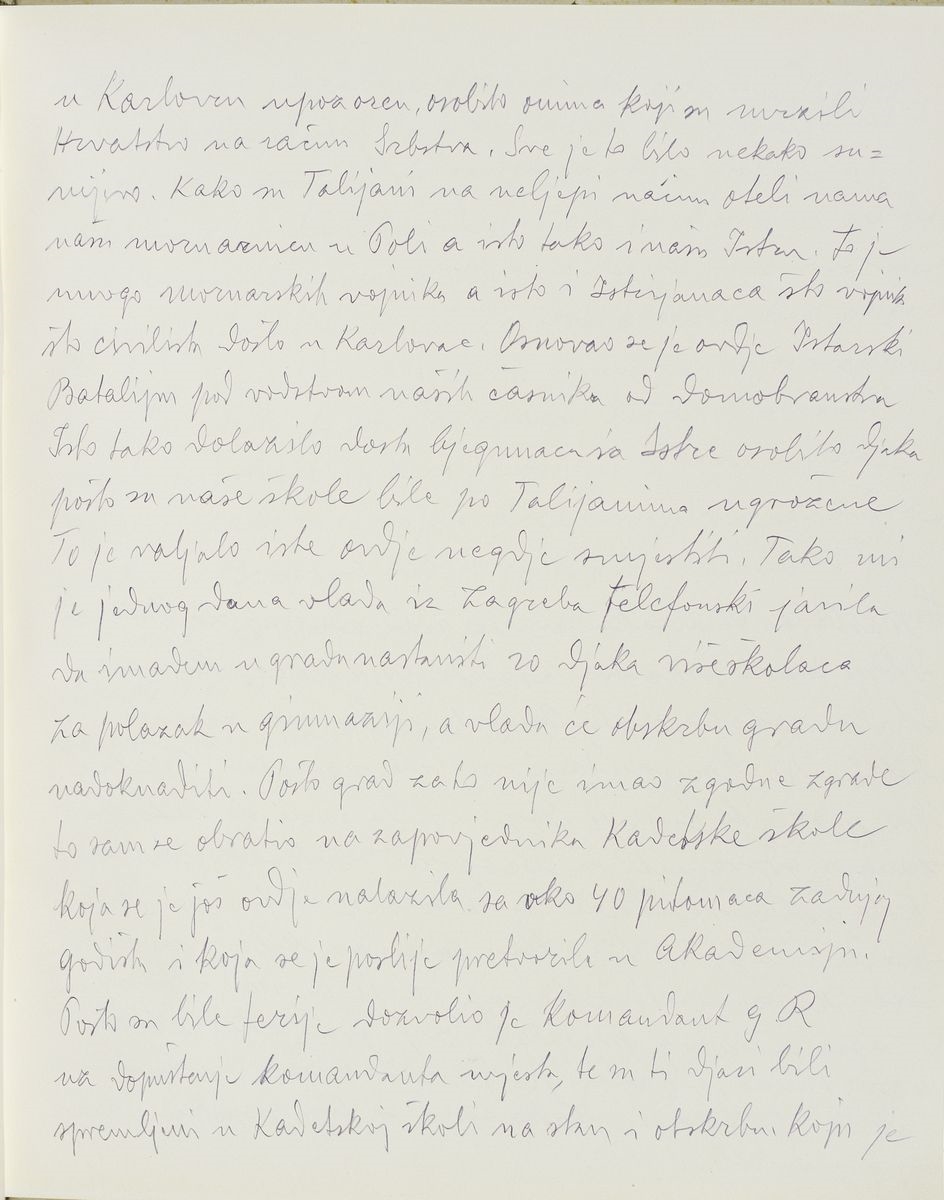 u Karlovcu upozoren, osobito onima koji su mrzili
Hrvatstvo na račun Srbstva. Sve je to bilo nekako su=
mnjivo. Kako su Talijani na neljepi način oteli nama
našu mornaricu u Poli a isto tako i našu Istru. To je
mnogo mornarskih vojnika a isto i Istrijanaca što vojnik
što civilista došlo u Karlovac. Osnovao se je ovdje Istarski
Batalijun pod vodstvom naših časnika od domobranstva
Isto tako dolazilo dosta bjegunaca iz Istre osobito djaka
pošto su naše škole bile po Talijanima ugrožene
To je valjalo iste ovdje negdje smjestiti. Tako mi
je jednog dana vlada iz Zagreba telefonski javila
da imadem u gradu nastaniti 20 djaka višeškolaca
za polazak u gimnaziji, a vlada će obskrbu gradu
nadoknaditi. Pošto grad zato nije imao zgodne zgrade
to sam se obratio na zapovjednika Kadetske škole
koja se je još ovdje nalazila sa oko 40 pitomaca zadnjeg
godišta i koja se je poslije pretvorila u Akademiju.
Pošto su bile ferije dozvolio je Komandant g R
uz dopuštenje komandanta mjesta, te su ti djaci bili
spremljeni u Kadetskoj školi na stan i obskrbu. Koji je